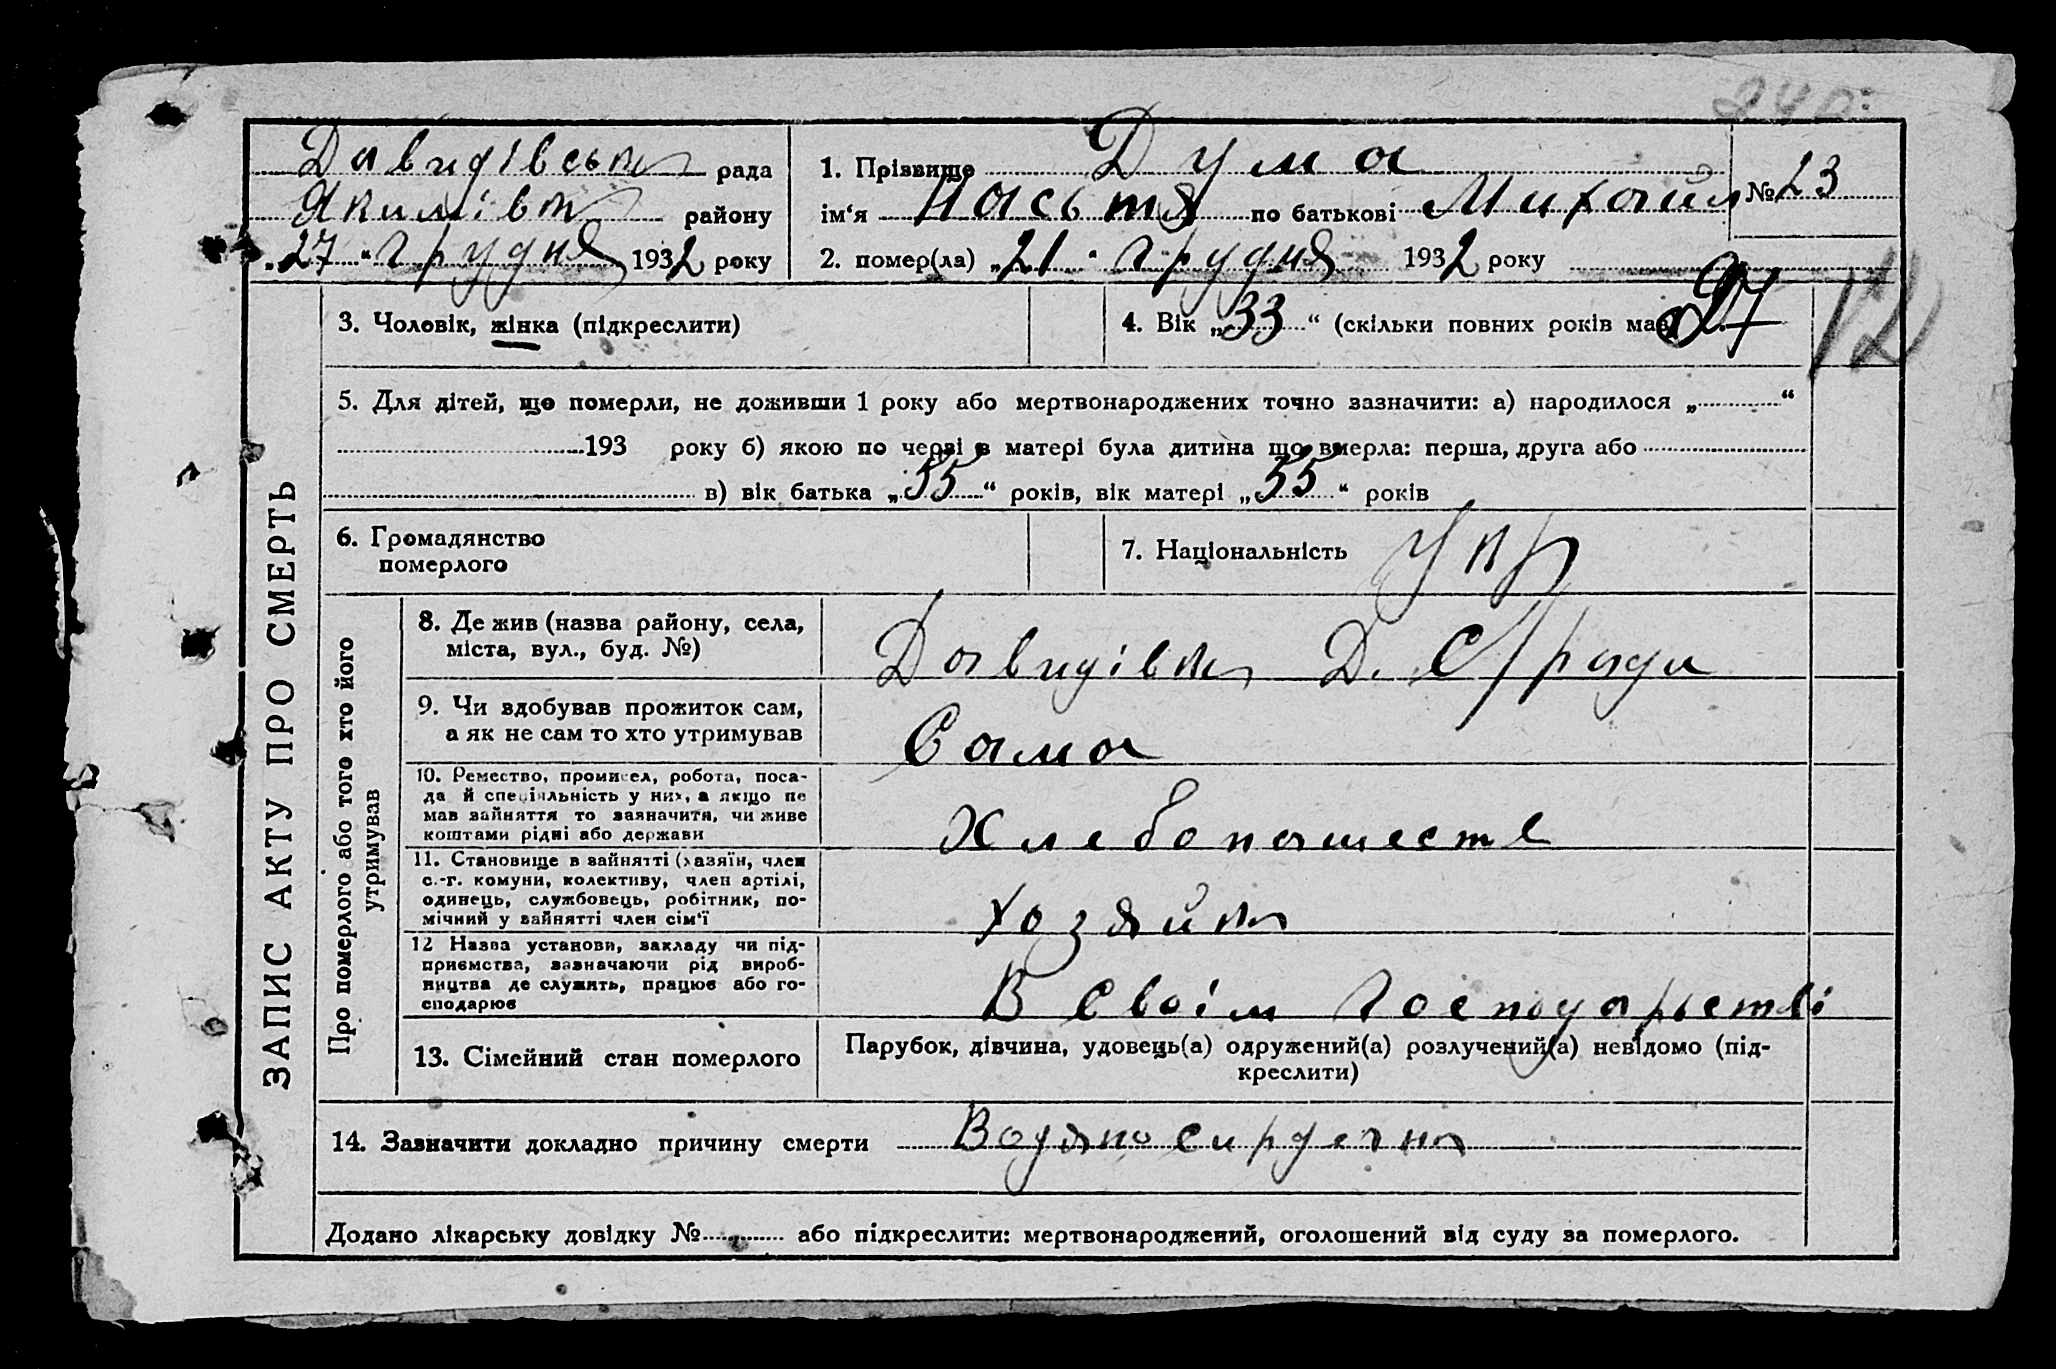 Давидівська рада
Якимівка району
„27“ грудня 1932 року
1. Прізвище Дума
ім‘я Настя по батькові Михайл
№ 23
2. помер(ла) „21“ грудня 1932 року
3. Чоловік, жінка (підкреслити)
4. Вік „33“ (скільки повних років мав)
27
12
5. Для дітей, що померли, не доживши 1 року або мертвонароджених точно зазначити: а) народилося „............“
193 року б) якою по черзі в матері була дитина що вмерла: перша, друга або
в) вік батька „55“ років, вік матері „55“ років
6. Громадянство
померлого
7. Національність Укр
ЗАПИС АКТУ ПРО СМЕРТЬ
Про померлого або того хто його
утримував
8. Де жив (назва району, села,
міста, вул., буд. №)
Давидівка Д. С/ради
9. Чи здобував прожиток сам,
а як не сам то хто утримував
Сама
10. Ремество, промисел, робота, поса-
да й спеціяльність у них, а якщо не
мав зайняття то зазначити, чи живе
коштами рідні або держави
Хлебопашеств
11. Становище в зайнятті (хазяїн, член
с.-г. комуни, колективу, член артілі,
одинець, службовець, робітник, по-
мічний у зайнятті член сім'ї
Хозяйка
12 Назва установи, закладу чи під-
приємства, зазначаючи рід вироб-
ництва де служить, працює або го-
сподарює
В своїм господарьстві
13. Сімейний стан померлого
Парубок, дівчина, удовець(а) одружений(а) розлучений(а) невідомо (під-
креслити)
14. Зазначити докладно причину смерти
Додано лікарську довідку №............ або підкреслити: мертвонароджений, оголошений від суду за померлого.